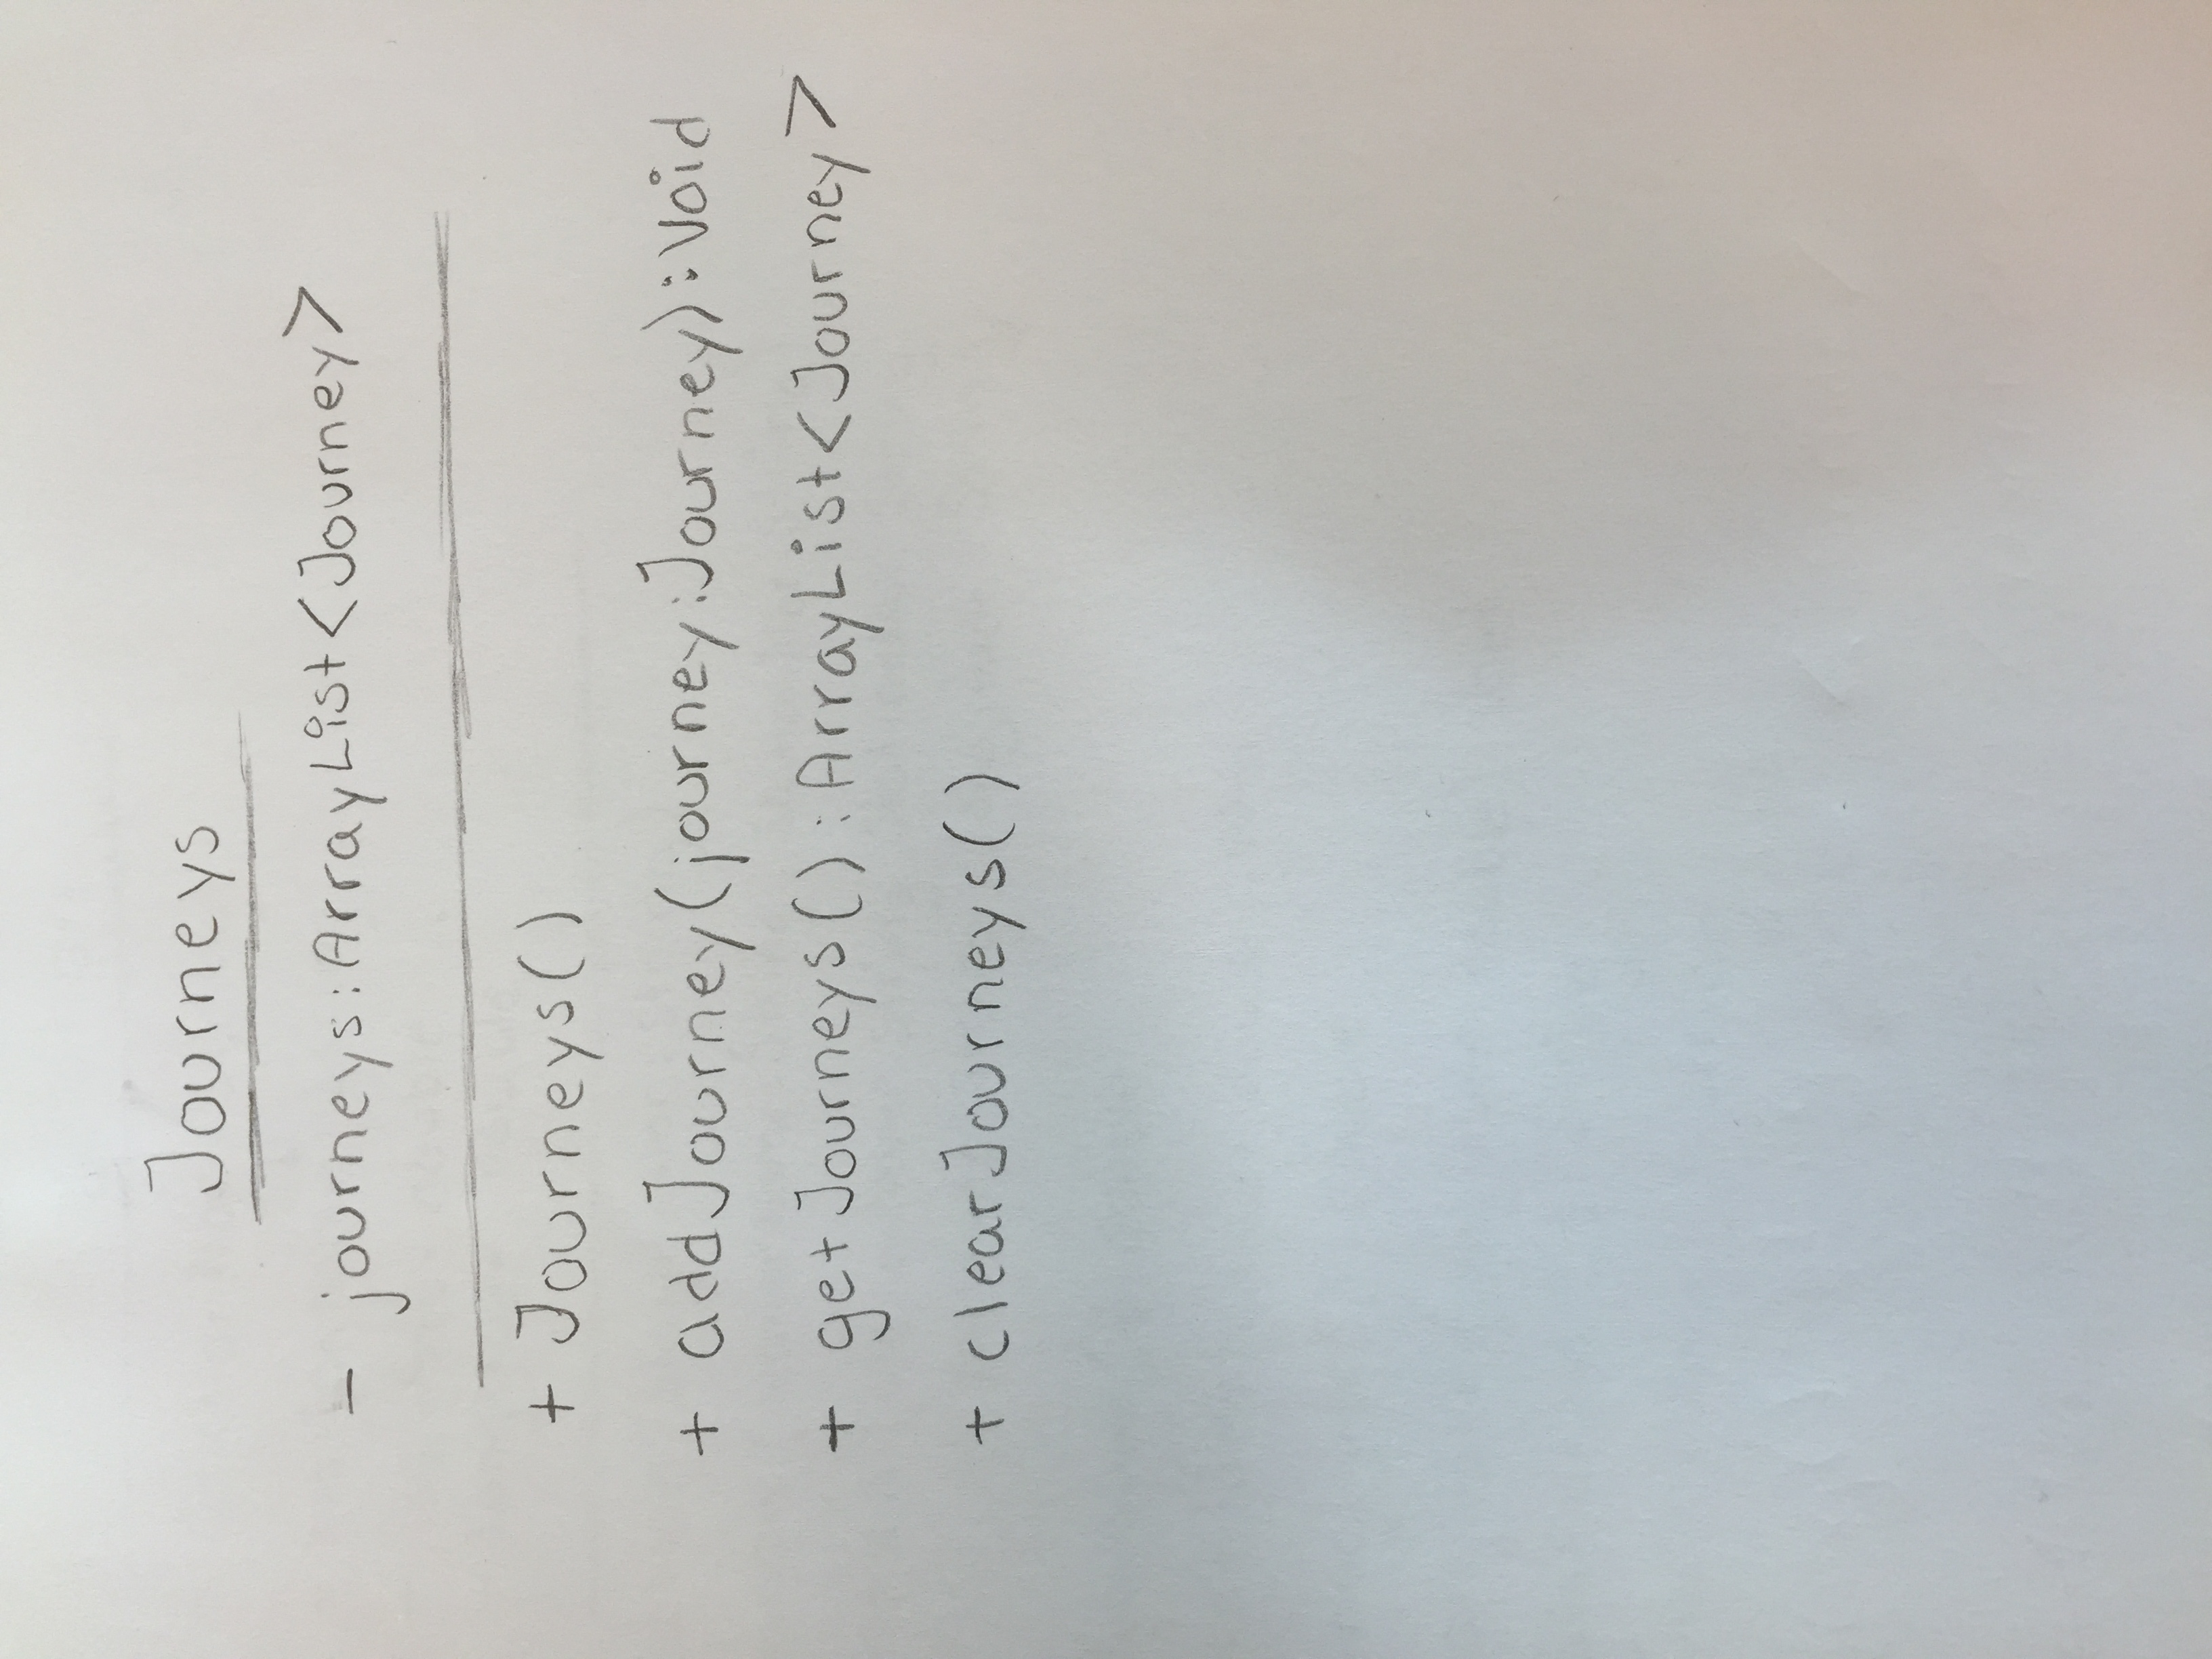 Journeys
- journeys:ArrayList<Journey>
+ Journeys()
+ addJourney(journey:Journey):Void
+ getJourneys():ArrayList<Journey>
+ clearJourneys()